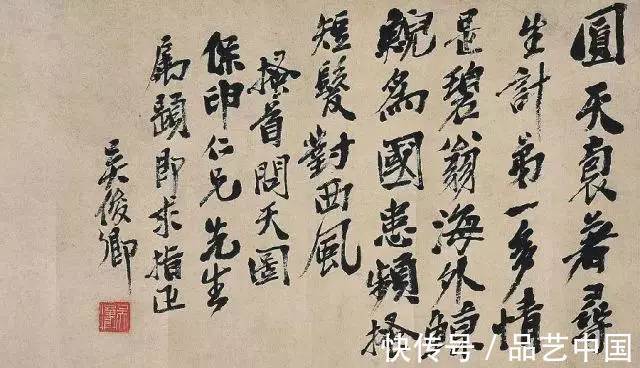 圓天裹著尋
生計第一多情
是碧翁海外鯨
鯢為國患頻搔
短髮對西風
搔首問天圖
保印仁兄先生
屬題即求指正
吳俊卿
快传号/品艺中国